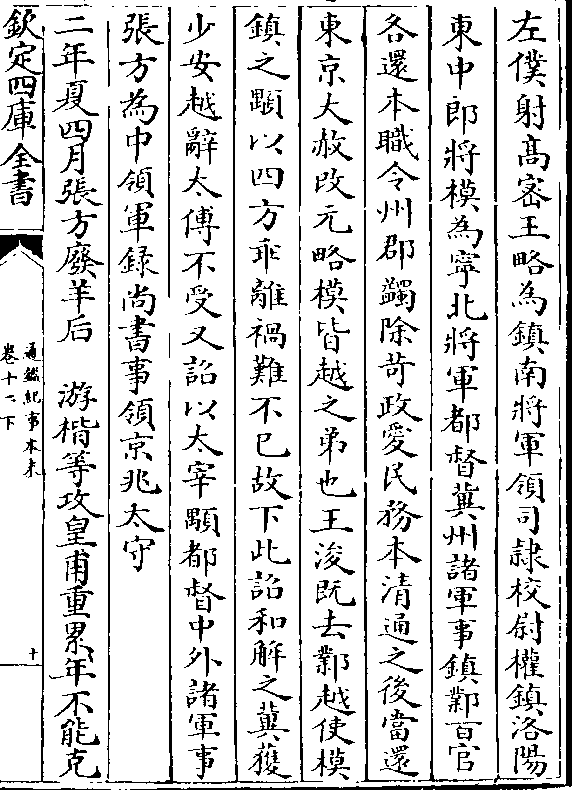 左僕射髙密王略為鎮南將軍領司𨽻校尉權鎮洛陽
東中郎將模為寧北將軍都督冀州諸軍事鎮鄴百官
各還本職令州郡蠲除苛政愛民務本清通之後當還
東京大赦改元略模皆越之弟也王浚既去鄴越使模
鎮之顒以四方乖離禍難不已故下此詔和解之冀獲
少安越辭太傅不受又詔以太宰顒都督中外諸軍事
張方為中領軍録尚書事領京兆太守
二年夏四月張方廢羊后　游楷等攻皇甫重累年不能克
欽定四庫全書
通鑑紀事本末
卷十二下
十